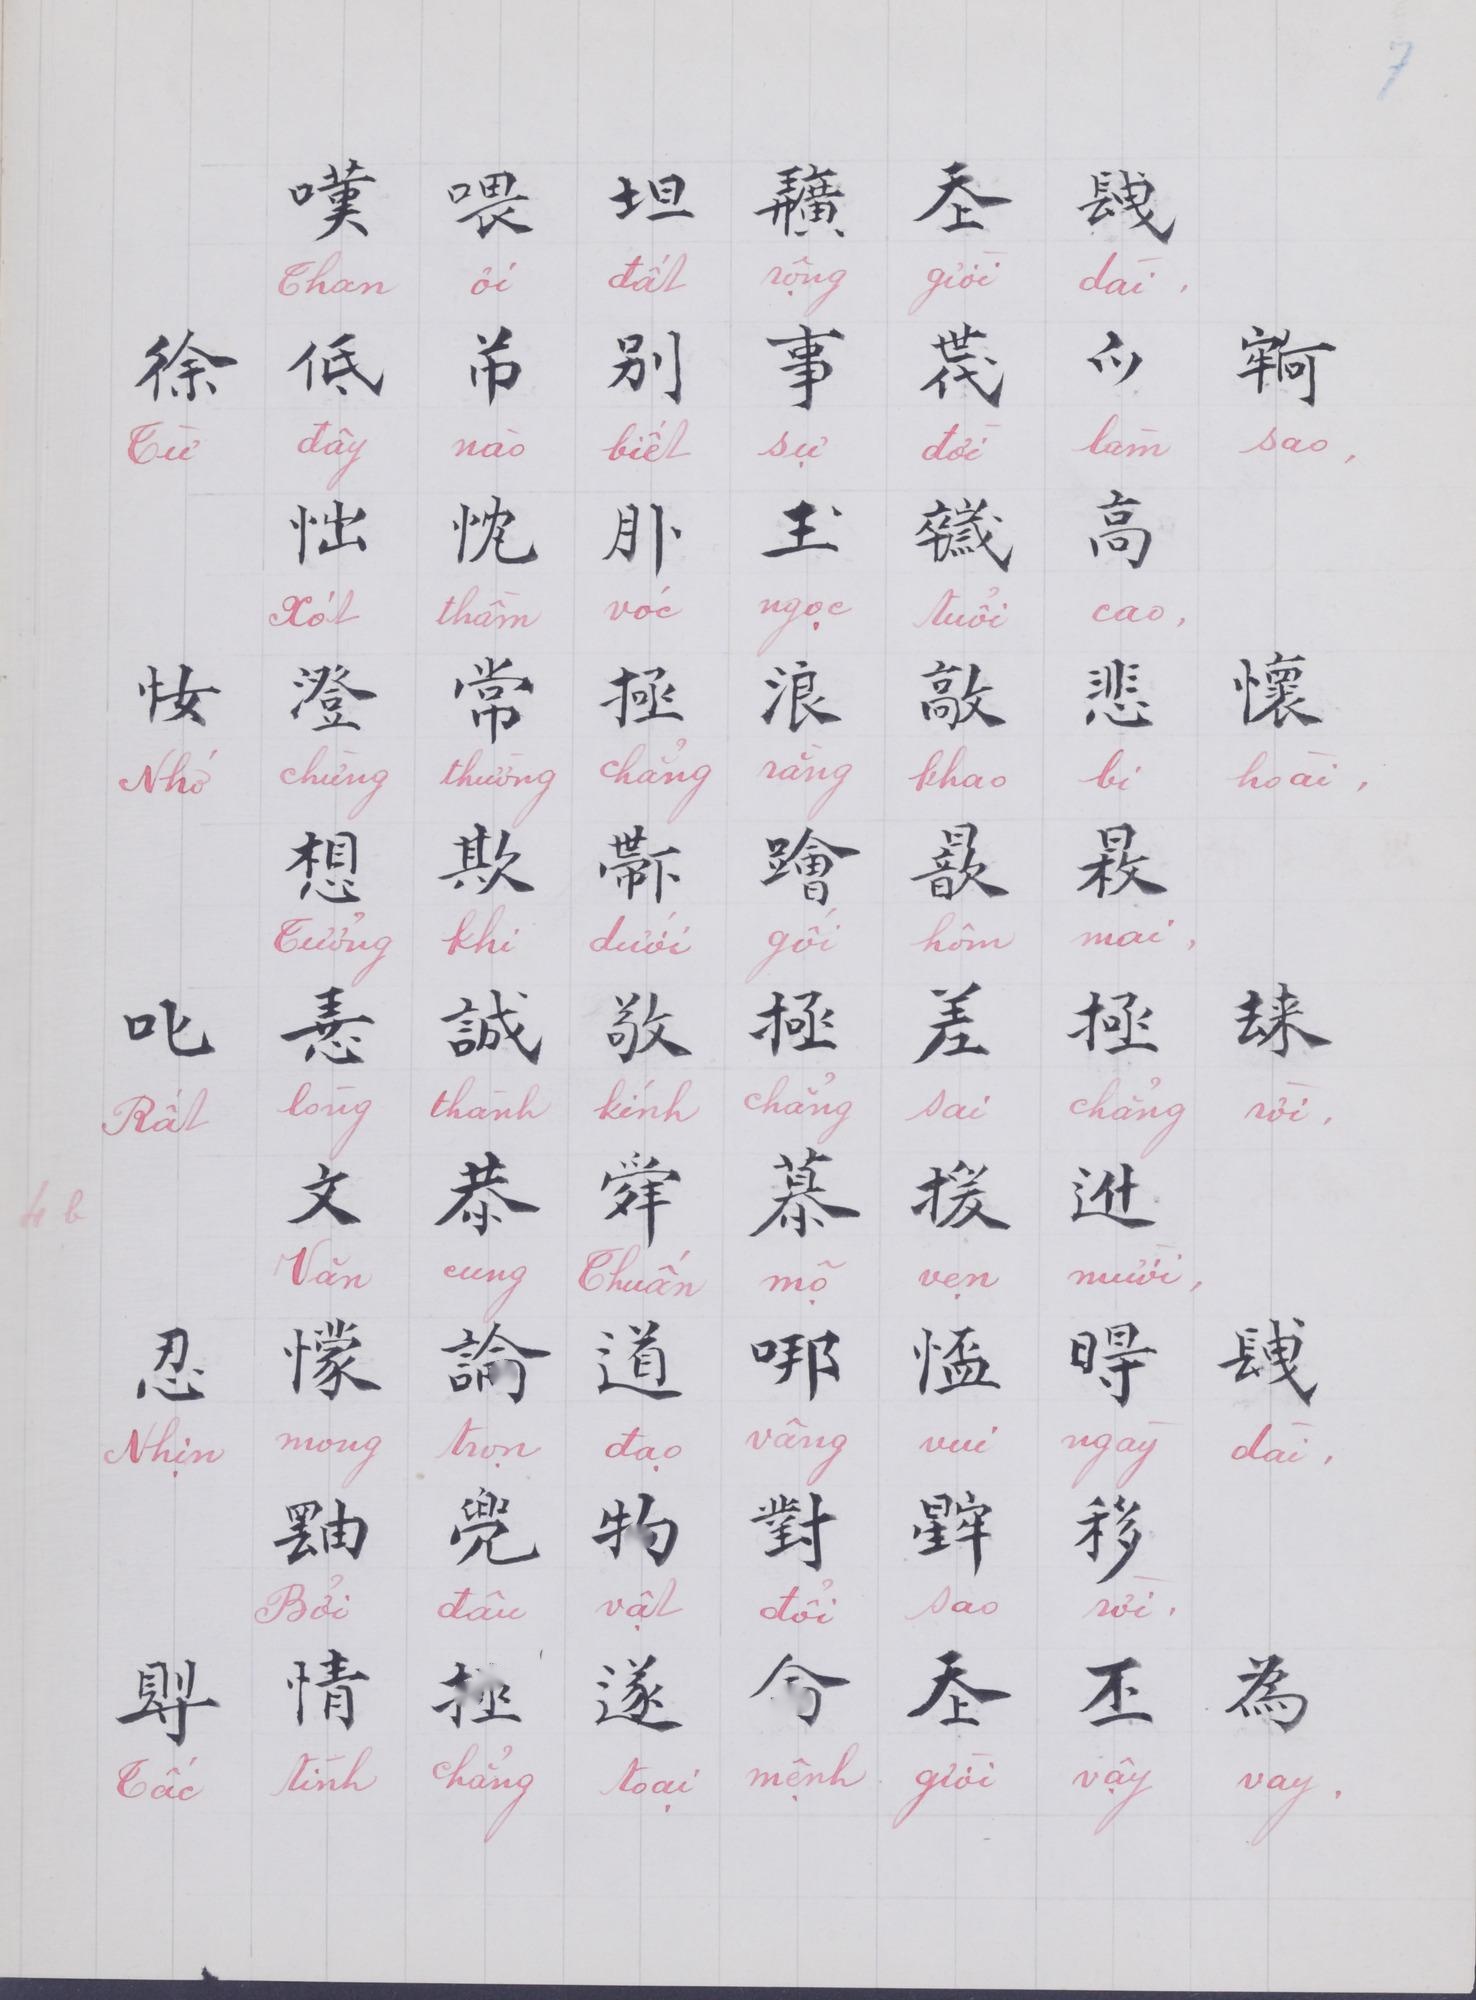 7
嘆 喂 坦 𢌌 𡗶 𨱽
Than ôi đất rộng giời dài,
徐 低 吊 別 事 𠁀 𫜵 𡨹
Từ đây nào biết sự đời làm sao,
怞 忱 𦙀 玉 𢆫 高
Xót thầm vóc ngọc tuổi cao,
𢘾 澄 常 拯 浪 敲 悲 懷
Nhớ chừng thường chẳng rằng khao bi hoài,
想 欺 𨑜 蹌 歆 枚
Tưởng khi dưới gối hôm mai,
叱 𢚸 誠 敬 拯 差 拯 耒
Rất lòng thành kính chẳng sai chẳng rời,
文 恭 舜 慕 援 𨑮
Văn cung Thuấn mộ vẹn mười,
4 b
忍 懞 論 道 𠳐 𢝙 𣈜 𨱽
Nhịn mong trọn đạo vâng vui ngày dài,
𤳄 兜 物 對 𣋀 移
Bởi đâu vật đổi sao rời,
𡬷 情 拯 遂 命 𡗶 丕 為
Tấc tình chẳng toại mệnh giời vậy vay.